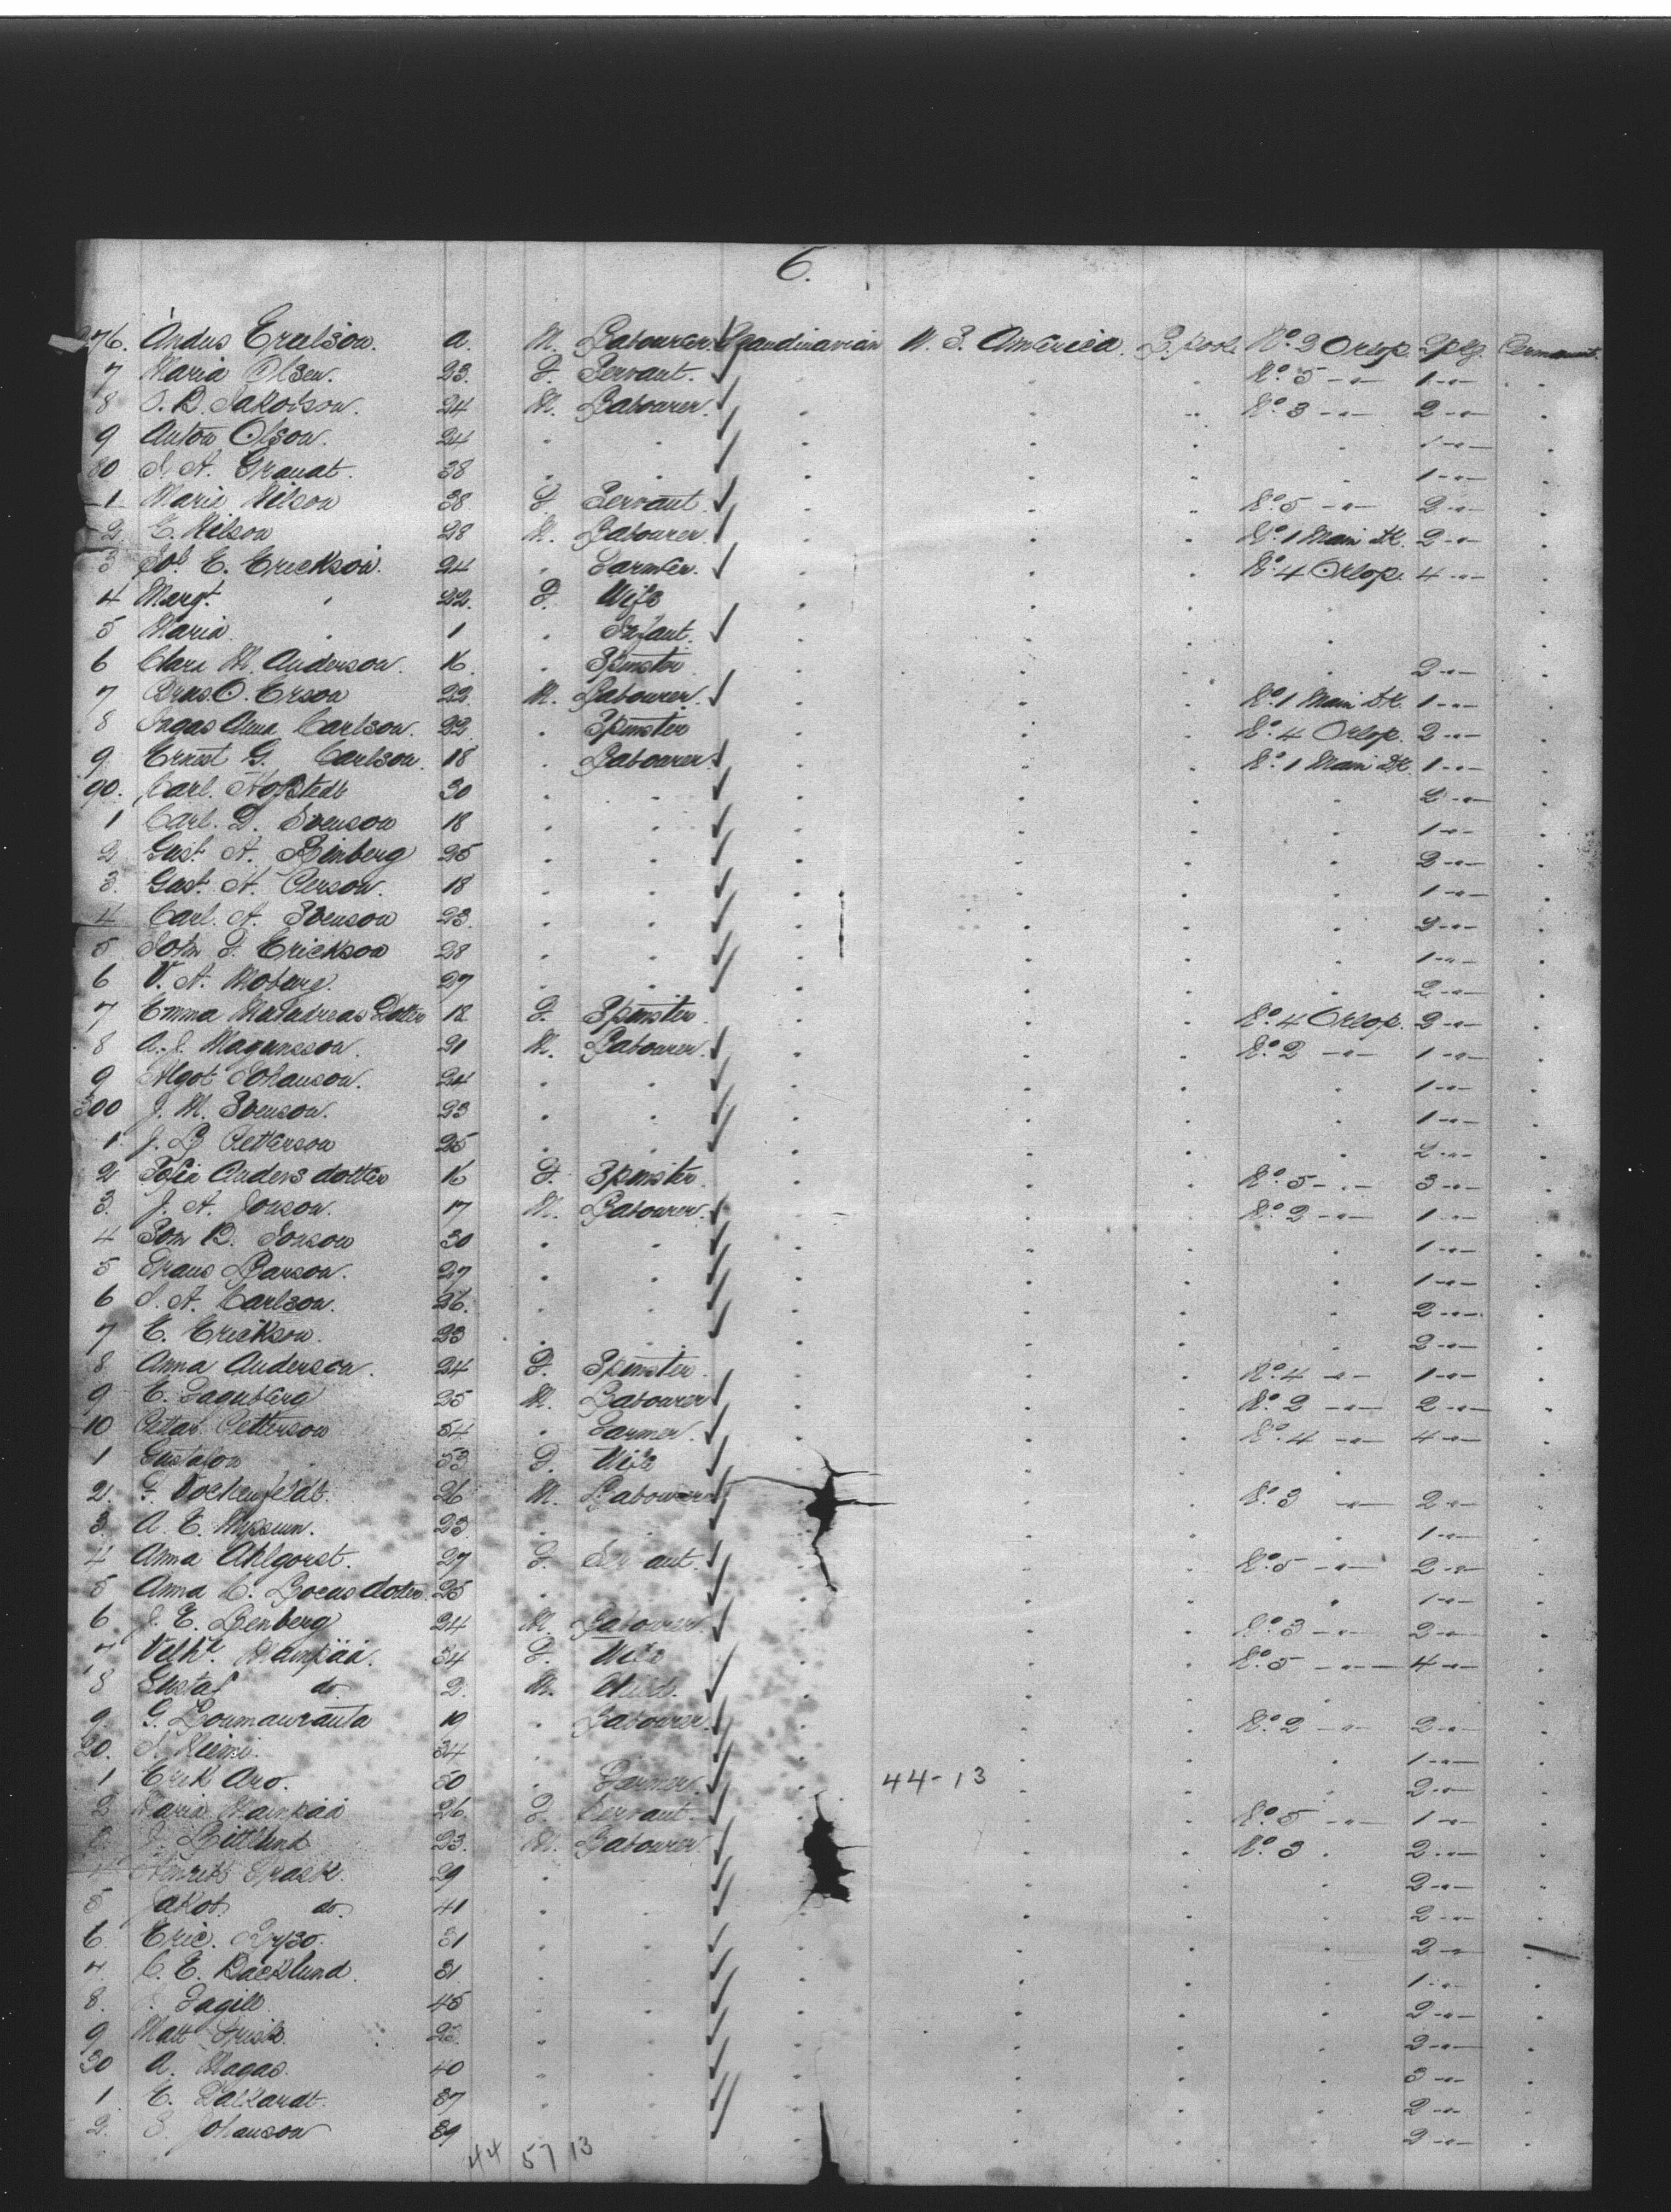 6.
276. Andus Erulson. a. M. Labourer. Scandinavian U. S. America. L.pool No. 3 Orlop. 2 pkg. Permanent.
7 Maria Olsen. 23. F. Servant. " " " No. 5 -"- 1 -"- "
8 24 M. Labourer. " " " No. 3 -"- 2 -"- "
9 Anton Olson. 24 " " " " " " 1 -"- "
80 A. Granat. 38 " " " " " " 1 -"- "
1 Maria Nilson 38 F. Servant. " " " No. 5 -"- 2 -"- "
2 E. Nilson 28 M. Labourer. " " " No. 1 Main Dk. 2 -"- "
3 E. Erickson. 24 " Farmer. " " " No. 4 Orlop. 4 -"- "
4 Margt. " 22. F. Wife " " " " "
5 Maria " 1 " Infant. " " " " "
6 Clara M. Anderson. 16. " Spinster " " " " 2 -"- "
7 O. Erson 22. M. Labourer. " " " No. 1 Main Dk. 1 -"- "
8 Anna Carlson. 22. " Spinster " " " No. 4 Orlop. 2 -"- "
9 Ernest G. Carlson. 18 " Labourer. " " " No. 1 Main Dk. 1 -"- "
90. Carl. Hofstedt 30 " " " " " " 2 -"- "
1 Carl. D. Svenson 18 " " " " " " 1 -"- "
2 Gust. A. Linberg 25 " " " " " " 2 -"- "
3. Gust. A. Person. 18 " " " " " " 1 -"- "
4 Carl. A. Svenson 23. " " " " " " 3 -"- "
5 John F. Erickson 28 " " " " " " 1 -"- "
6 V. A. Moberg. 27 " " " " " " 2 -"- "
7 Emma Dotter 18. F. Spinster. " " " No. 4 Orlop. 2 -"- "
8 A. J. Magnusson. 21 M. Labourer. " " " No. 2 -"- 1 -"- "
9 Algot Johanson. 24 " " " " " " 1 -"- "
300 J. M. Svenson. 23 " " " " " " 1 -"- "
1. J. B Petterson 25 " " " " " " 2 -"- "
2 Sofia Anders dotter 16 F. Spinster. " " " No. 5 -"- 3 -"- "
3. J. A. Jonson. 17 M. Labourer. " " " No. 2 -"- 1 -"- "
4 B. Jonson 30 " " " " " " 1 -"- "
5 Larson. 27 " " " " " " 1 -"- "
6 A. Carlson. 26. " " " " " " 2 -"- "
7 E. Erickson. 23 " " " " " " 2 -"- "
8 Anna Anderson. 24 F. Spinster. " " " No. 4 -"- 1 -"- "
9 E. Fagerberg 25 M. Labourer " " " No. 2 -"- 2 -"- "
10 Petterson 54 " Farmer. " " " No. 4 -"- 4 -"- "
1 " 53 F. Wife " " " " "
2. 26 M. Labourer " " " No. 3 -"- 2 -"- "
3. A. E. 23 " " " " " " 1 -"- "
4 Anna Ahlgorst. 27 F. Servant. " " " No. 5 -"- 2 -"- "
5 Anna C. dotter. 25 " " " " " " 1 -"- "
6 J. E. Lenberg 24 M. Labourer. " " " No. 3 -"- 2 -"- "
7 34 F. Wife " " " No. 5 -"- 4 -"- "
8 Gustaf do. 2. M. Child. " " " " "
9. G. 19 " Labourer. " " " No. 2 -"- 2 -"- "
20. Niemi. 34 " " " " " " 1 -"- "
1 Erik Aro. 50 " Farmer. " 44-13 " " " 2 -"- "
2 Maria 26. F. Servant. " " " No. 5 -"- 1 -"- "
23. M. Labourer. " " " No. 3 " 2 -"- "
29 " " " " " " 2 -"- "
5 Jakob. do. 41 " " " " " " 2 -"- "
6. Eric. 31 " " " " " " 2 -"- "
7. C. E. Backlund. 31. " " " " " " 1 -"- "
8. 45 " " " " " " 2 -"- "
9 Matt " " " " " " 2 -"- "
30 A. Magas. 40 " " " " " " 3 -"- "
1. E. 37 " " " " " " 2 -"- "
2. Johanson 39 " " " " " " 2 -"- "
44 57 13